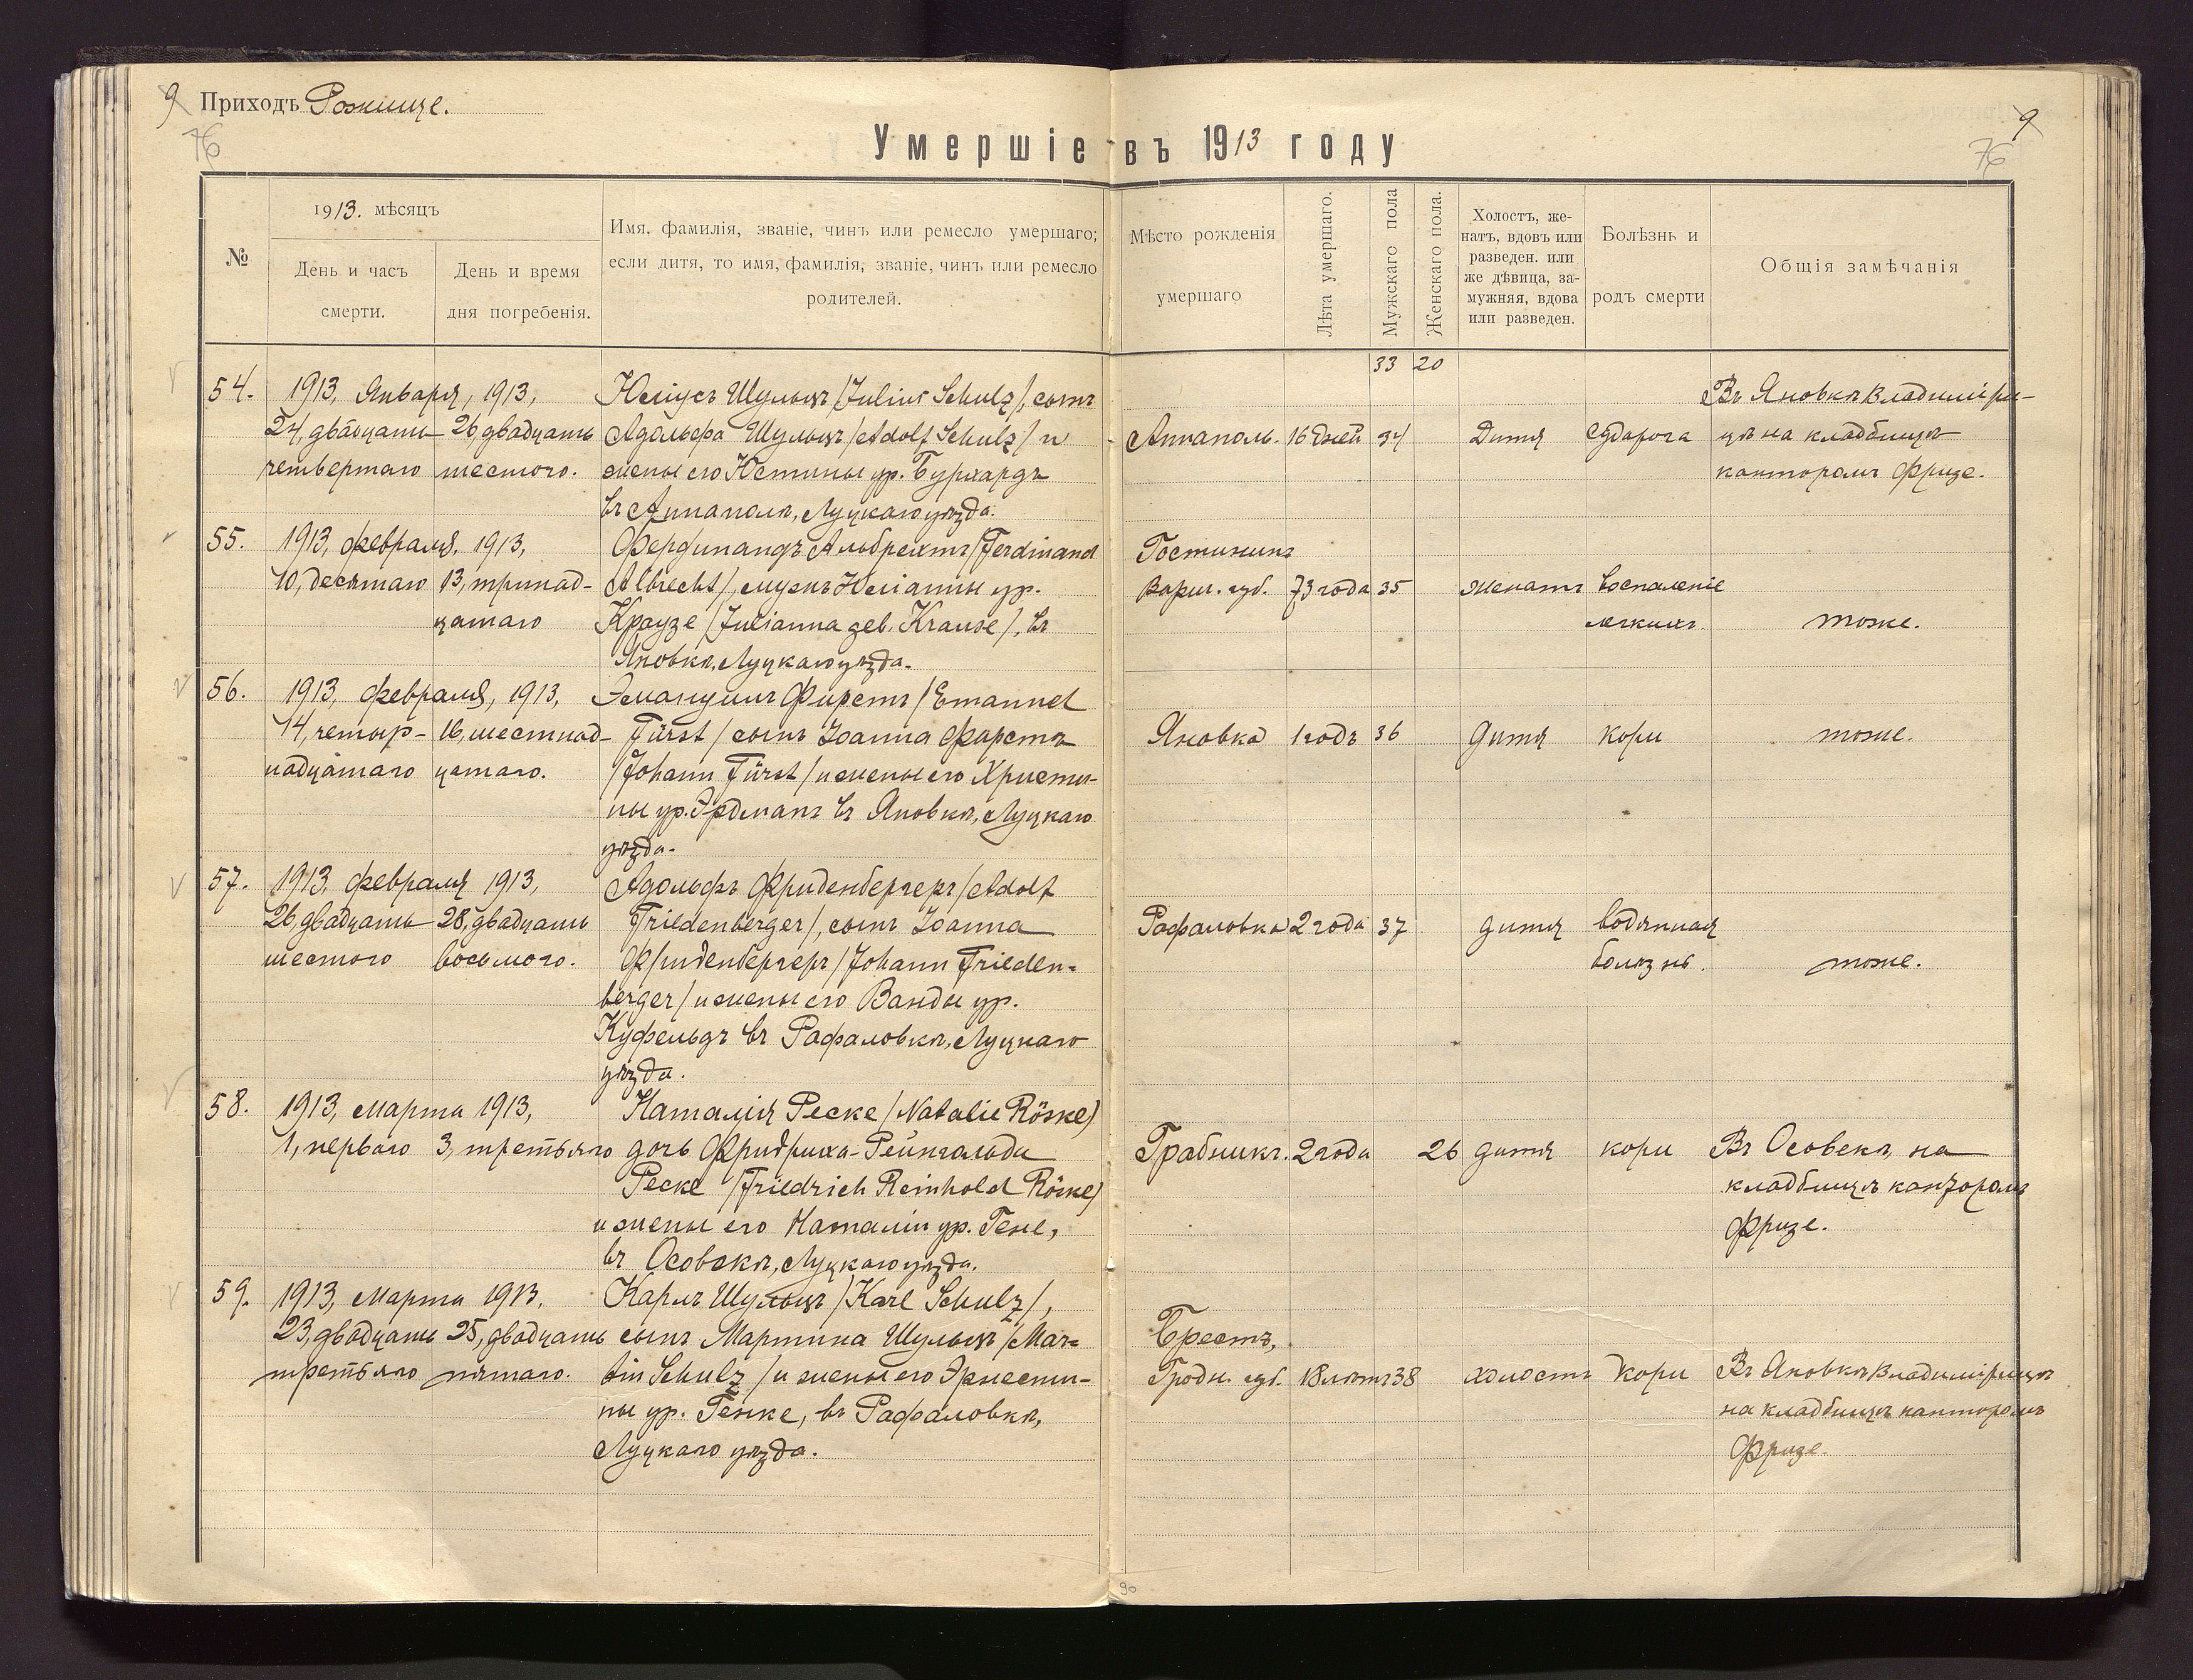 9 Приходъ Рожище.
76
9
76
Умершіе въ 1913 году
№
1913. мѣсяцъ
День и часъ
смерти.
День и время
дня погребенія.
Имя, фамилія, званіе, чинъ или ремесло умершаго;
если дитя, то имя, фамилія, званіе, чинъ или ремесло
родителей.
Мѣсто рожденія
умершаго
Лѣта умершаго.
Мужскаго пола
Женскаго пола.
Холостъ, же-
натъ, вдовъ или
разведен. или
же дѣвица, за-
мужняя, вдова
или разведен.
Болѣзнь и
родъ смерти
Общія замѣчанія
33 20
54. 1913, Января, 1913, Юліусъ Шульцъ /Julius Schulz/, сынъ
24, двадцать 26, двадцать Адольфа Шульцъ /Adolf Schulz/ и
четвертаго шестого. жены его Юстины ур. Бурхардъ
въ Аннаполѣ, Луцкаго уѣзда.
Аннаполь. 16 дней 34 Дитя судорога
Въ Яновкѣ Владимiри-
цѣ на кладбищѣ
канторомъ Фризе.
55. 1913, Февраля, 1913, Фердинандъ Альбрехтъ /Ferdinand
10, десятаго 13, тринад- Albrecht/, мужъ Юліанны ур.
цатаго Краузе /Julianna geb. Krause/, въ
Яновкѣ, Луцкаго уѣзда.
Гостининъ
Варш. губ. 73 года 35 женатъ воспаленіе
легкихъ. тоже.
56. 1913, Февраля, 1913, Эмануилъ Фирстъ /Emanuel
14, четыр- 16, шестнад- Fürst/ сынъ Іоанна Фирстъ
надцатаго цатаго. /Johann Fürst/ и жены его Христи-
ны ур. Эрдманъ въ Яновкѣ, Луцкаго
уѣзда.
Яновка 1 годъ 36 дитя кори тоже.
57. 1913, Февраля 1913, Адольфъ Фриденбергеръ /Adolf
26, двадцать 28, двадцать Friedenberger/, сынъ Іоанна
шестого восьмого. Фриденбергеръ /Johann Frieden-
berger/ и жены его Ванды ур.
Куфельдъ въ Рафаловкѣ, Луцкаго
уѣзда.
Рафаловка 2 года 37 дитя водянная
болѣзнь. тоже.
58. 1913, Марта 1913, Наталія Реске /Natalie Röske/
1, перваго 3, третьяго дочь Фридриха-Рейнгольда
Реске /Friedrich Reinhold Röske/
и жены его Наталіи ур. Гене,
въ Осовекѣ, Луцкаго уѣзда.
Грабникъ. 2 года 26 дитя кори Въ Осовекѣ, на
кладбищѣ канторомъ
Фризе.
59. 1913, Марта 1913. Карлъ Шульцъ /Karl Schulz/,
23, двадцать 25, двадцать сынъ Мартина Шульцъ /Mar-
третьяго пятаго. tin Schulz/ и жены его Эрнести-
ны ур. Генке, въ Рафаловкѣ,
Луцкаго уѣзда.
Брестъ,
Гродн. губ. 18 лѣтъ 38 холостъ кори Въ Яновкѣ Владимірицѣ
на кладбищѣ канторомъ
Фризе.
90